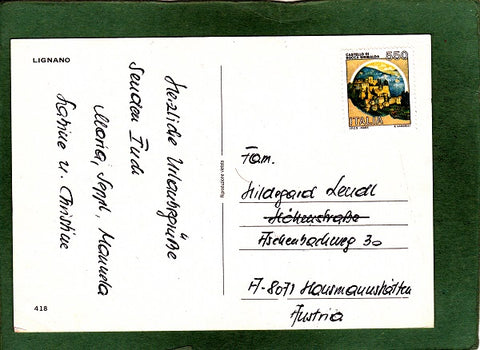 LIGNANO
Herzliche Urlaubsgrüße
senden Euch
Maria, Seppl, Manuela
Sabine u. Christine
418
Riproduzione vietata
CASTELLO DI
ROCCA SINIBALDA
550
ITALIA
Fam.
Hildegard Lendl
Höhenstraße
Aschenbachweg 30
A-8071 Hausmannstätten
Austria